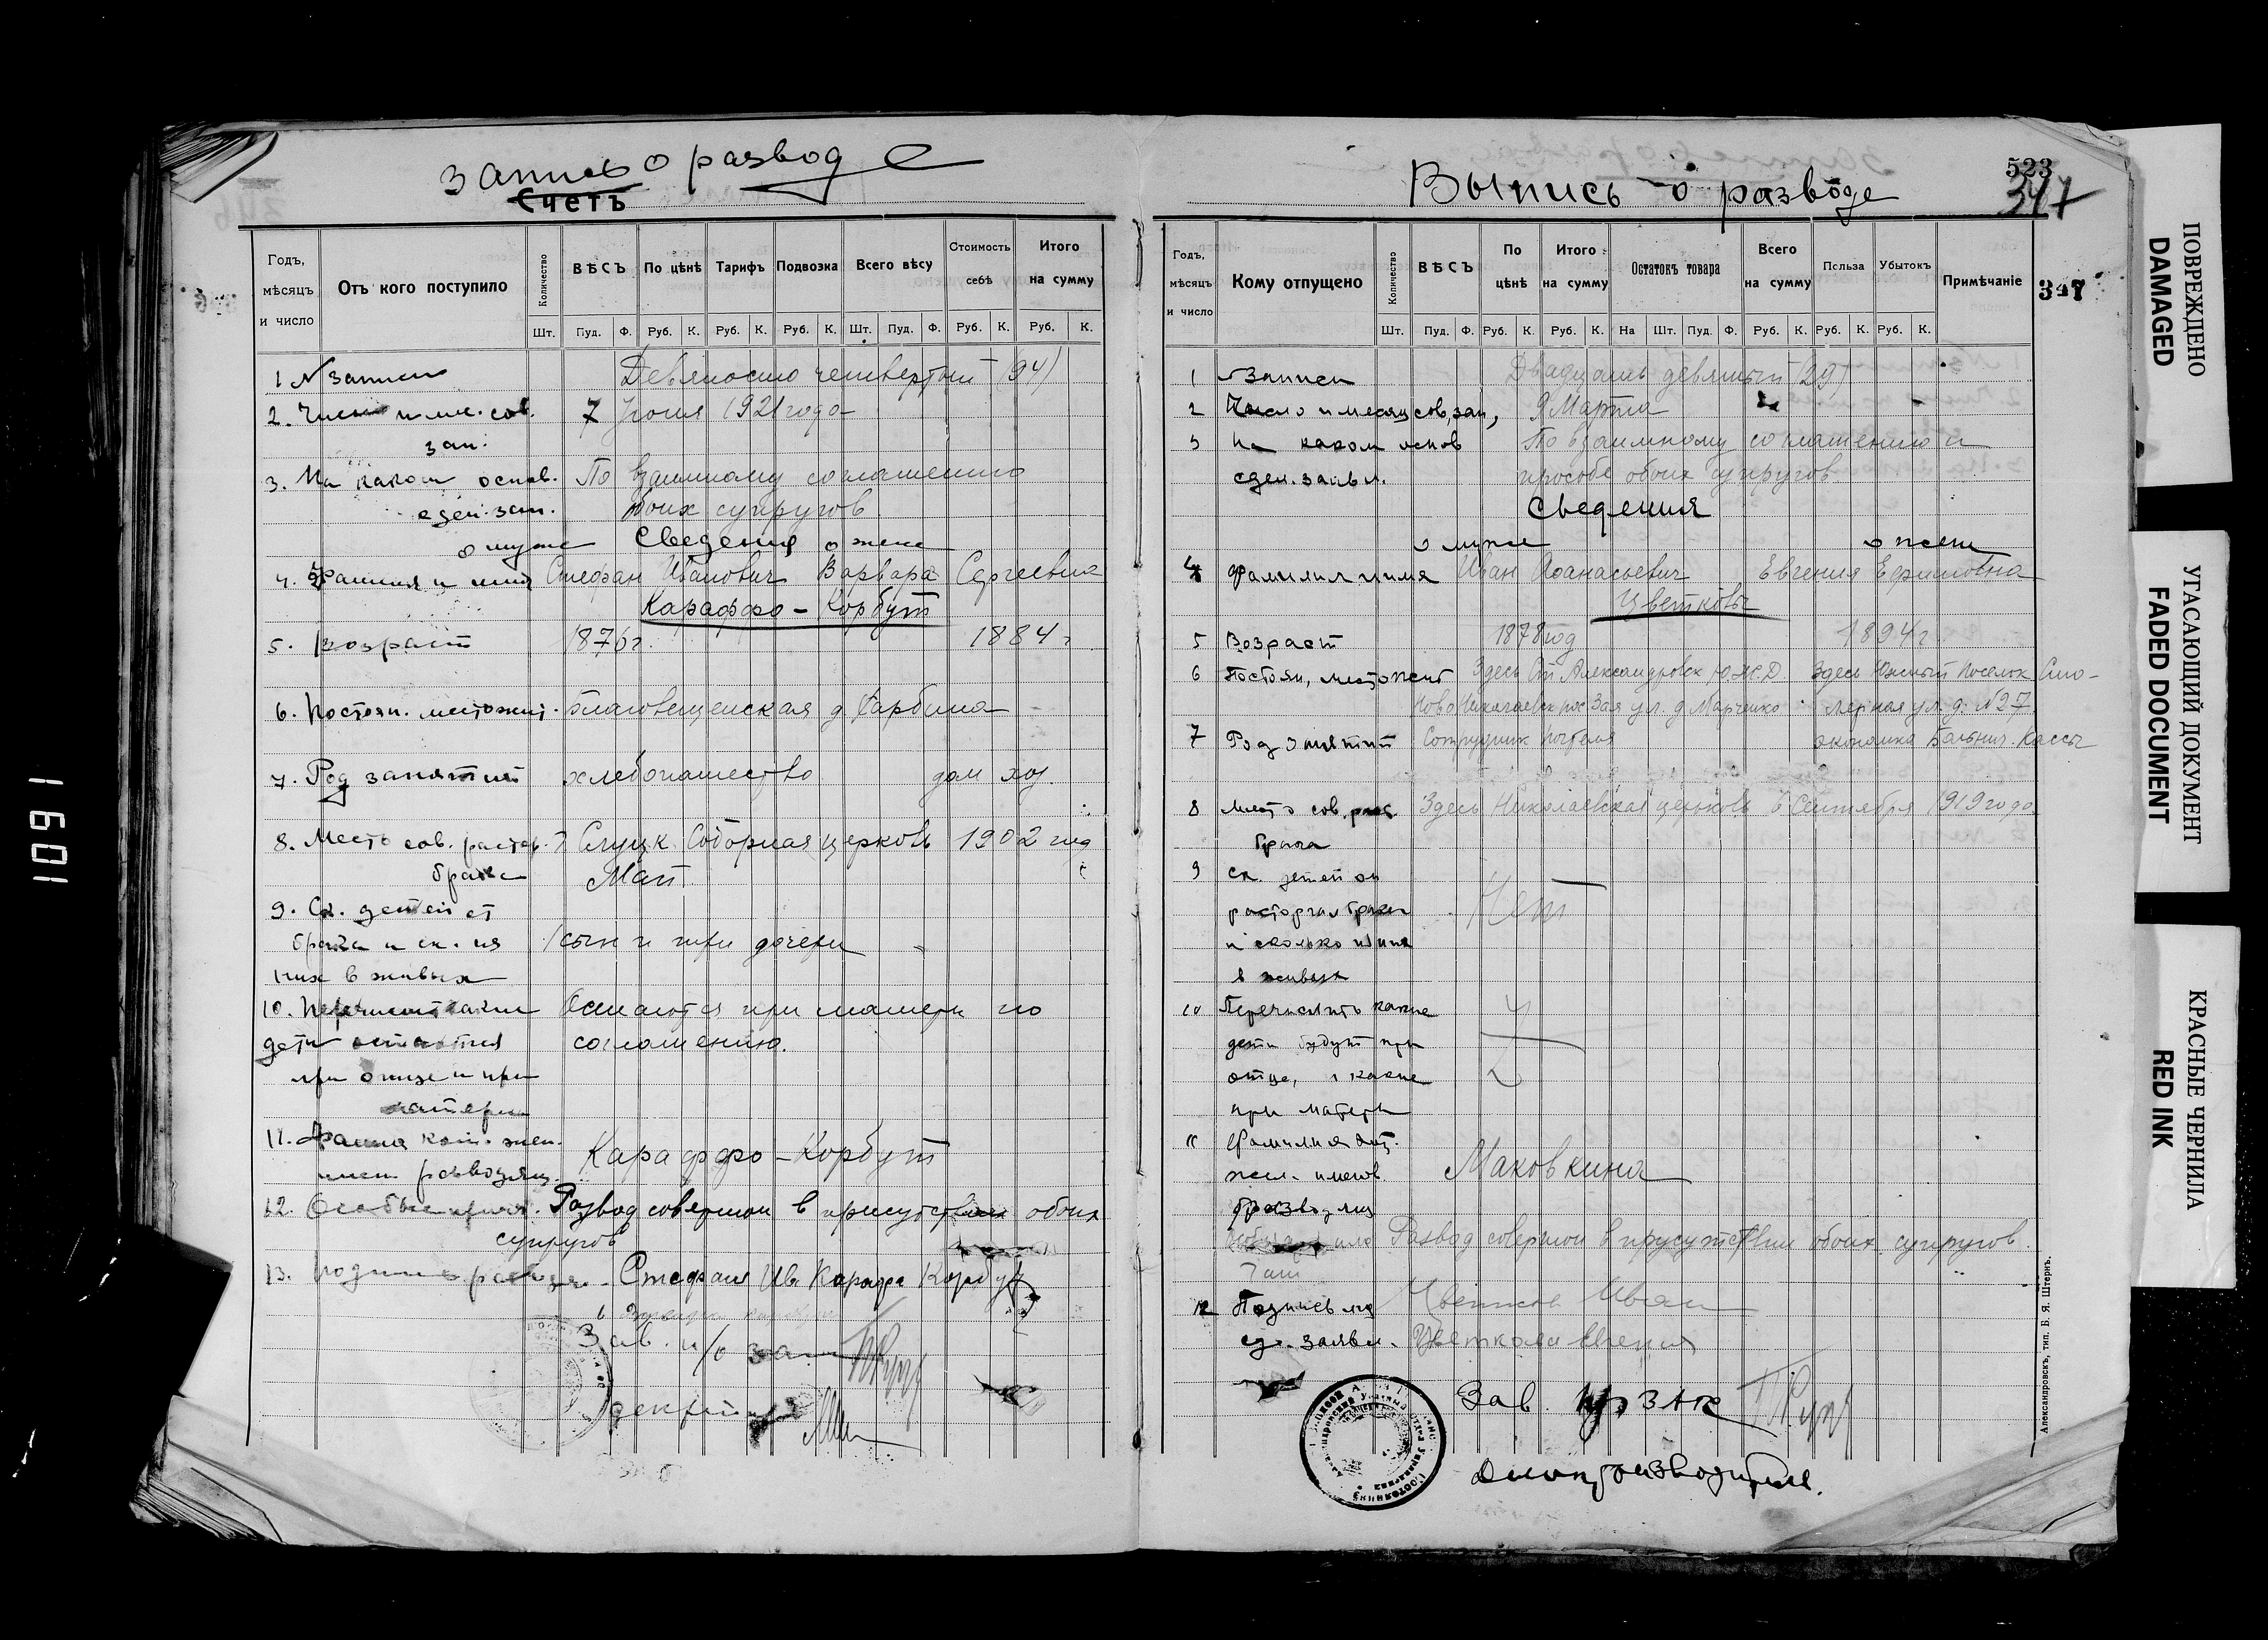 запись о разводе
Счетъ
Годъ, мѣсяцъ и число
Отъ кого поступило
Количество
ВѢСЪ
По цѣнѣ
Тарифъ
Подвозка
Всего вѣсу
Стоимость себѣ
Итого на сумму
Шт. Пуд. Ф. Руб. К. Руб. К. Руб. К. Шт. Пуд. Ф. Руб. К. Руб. К.
1 № записи Девяносто четвертый (94)
2. Число и мес. сов. 7 Июня 1921 года
зап.
3. На каком основ. По взаимному соглашению
сдел. зап. обоих супругов
о муже Сведения о жене
4. Фамилия и имя Стефан Иванович Варвара Сергеевна
Караффо-Корбут
5. Возраст 1876 г. 1884 г
6. Постоян. местожит. Благовещенская д Гарбина
7. Род занятий хлебопашество дом хоз.
8. Место сов. растор. Слуцк. Соборная церковь 1902 год
брака Май
9. Ск. детей от
брака и ск. из 1 сын и три дочери
них в живых
10. Перечислит какие Остаются при матери по
дети остаются соглашению.
при отце и при
матери
11. Фамил кот. жел.
имет. разводящ. Караффо-Корбут
12. Особые примеч. Развод совершен в присутствии обоих
супругов
13. Подписи разводя. Стефан Ив Карафа Корбут
Зав. п/о зап
Секрет
Выпись о разводе
523
347
Годъ, мѣсяцъ и число
Кому отпущено
Количество
ВѢСЪ
По цѣнѣ
Итого на сумму
Остатокъ товара
Всего на сумму
Польза
Убытокъ
Примѣчаніе
347
Шт. Пуд. Ф. Руб. К. Руб. К. На Шт. Пуд. Ф. Руб. К. Руб. К. Руб. К.
1 № Записи Двадцать девятый (29)
2 Число и месяц сов, зап, 9 Марта
3 На каком основ По взаимному соглашению и
сдел. заявл. просьбе обоих супругов
Сведения
о муже о жене
4 Фамилия и имя Иван Афанасьевич Евгения Ефимовна
Цветковы
5 Возраст 1878 год 1894 г.
6 Постоян, местожит Здесь Ст Александровск Ю.Ж.Д. Здесь Южный Поселок Сто-
Ново Николаевск пос 3ая ул. д Марченко лярная ул. д. №27
7 Род занятий Сотрудник экономка Больнич. Кассы
8 Место сов. рас. Здесь Николаевская церковь 6 Сентября 1919 года
брака
9 Ск. детей от
расторгал брака Нет
и сколько из них
в живых
10 Перечислить какие
дети будут при
отце, и какие
при матери
11 Фамилия кот.
жел. именов Маковкина
разводящ
Развод совершен в присутствии обоих супругов
12 Подпись лиц Цветков Иван
сд. заявл. Цветкова Евгения
Зав. п/о ЗАГС
Делопроизводитель.
Александровскъ, тип. Б. Я. Штернъ.
ПОВРЕЖДЕНО
DAMAGED
УГАСАЮЩИЙ ДОКУМЕНТ
FADED DOCUMENT
КРАСНЫЕ ЧЕРНИЛА
RED INK
1601